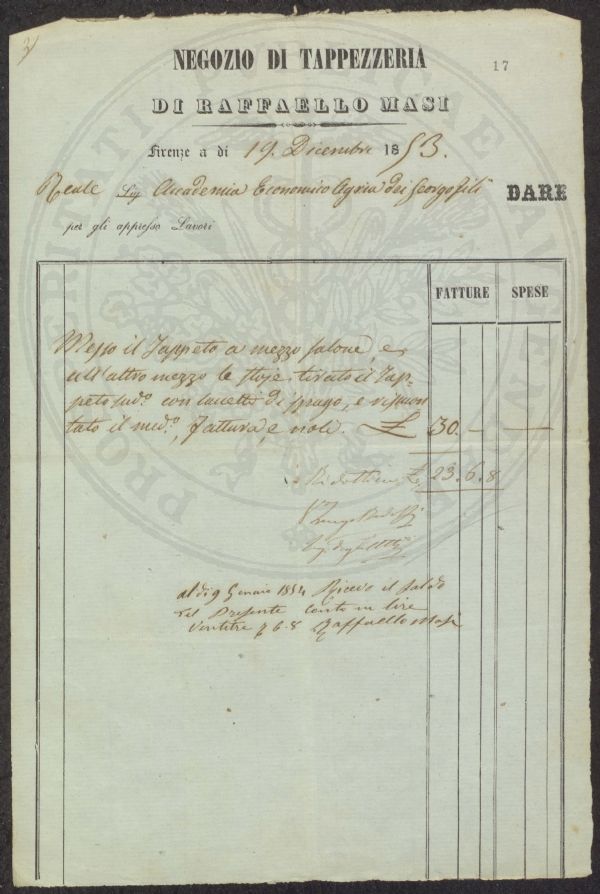 3/
NEGOZIO DI TAPPEZZERIA
17
DI RAFFAELLO MASI
Firenze a di 19. Dicembre 1853.
Reale Sig Accademia Economico Agria dei Georgofili DARE
per gli appresso Lavori
FATTURE SPESE
Messo il Tappeto a mezzo salone, e
all'altro mezzo le stoje tirato il Tap=
peto sud.º con di spago, e rismon
tato il med.º, fattura, e noli. £ 30. — —
Ridotti in £ 23. 6. 8
al dì 9 Gennaio 1854 Ricevo il saldo
del Presente conto in lire
Ventitre 6.8 Raffaello Masi